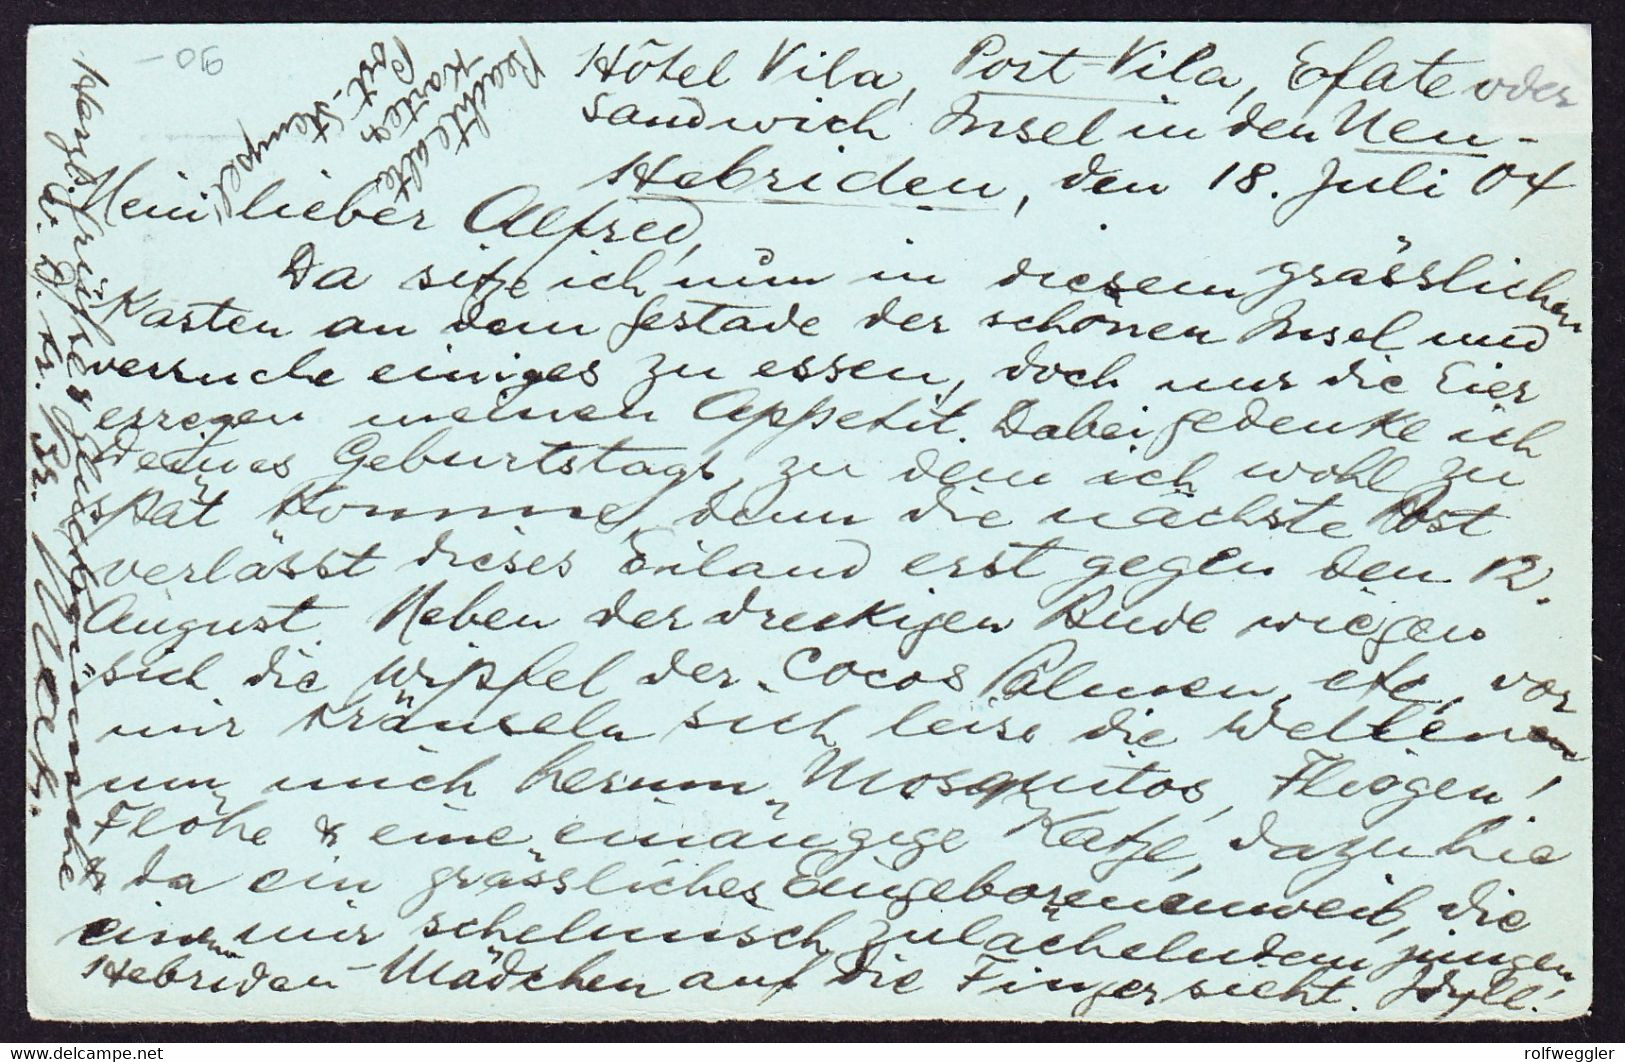 90 -
Beachte alte
Karte &
Post-Stempel!
Hôtel Vila, Port-Vila, Efate oder
Sandwich Insel in den Neu-
Hebriden, den 18. Juli 04
Mein lieber Alfred,
Da sitze ich nun in diesem grässlichen
Kasten an dem Gestade der schönen Insel und
versuche einiges zu essen, doch nur die Eier
erregen meinen Appetit. Dabei gedenke ich
Deines Geburtstags, zu dem ich wohl zu
spät komme, denn die nächste Post
verlässt dieses Eiland erst gegen den 12.
August. Neben der dreckigen Bude wiegen
sich die Wipfel der Cocos Palmen, etc, vor
mir kräuseln sich leise die Wellen
um mich herum Mosquitos, Fliegen!
Flöhe & eine einäugige Katze, dazu hie
& da ein grässliches Eingeborenenweib, die
einem mir schelmisch zulächelndem jungen
Hebriden-Mädchen auf die Finger sieht. Idyll!
Herzl. Grüsse & Glückwünsche
rolfweggler